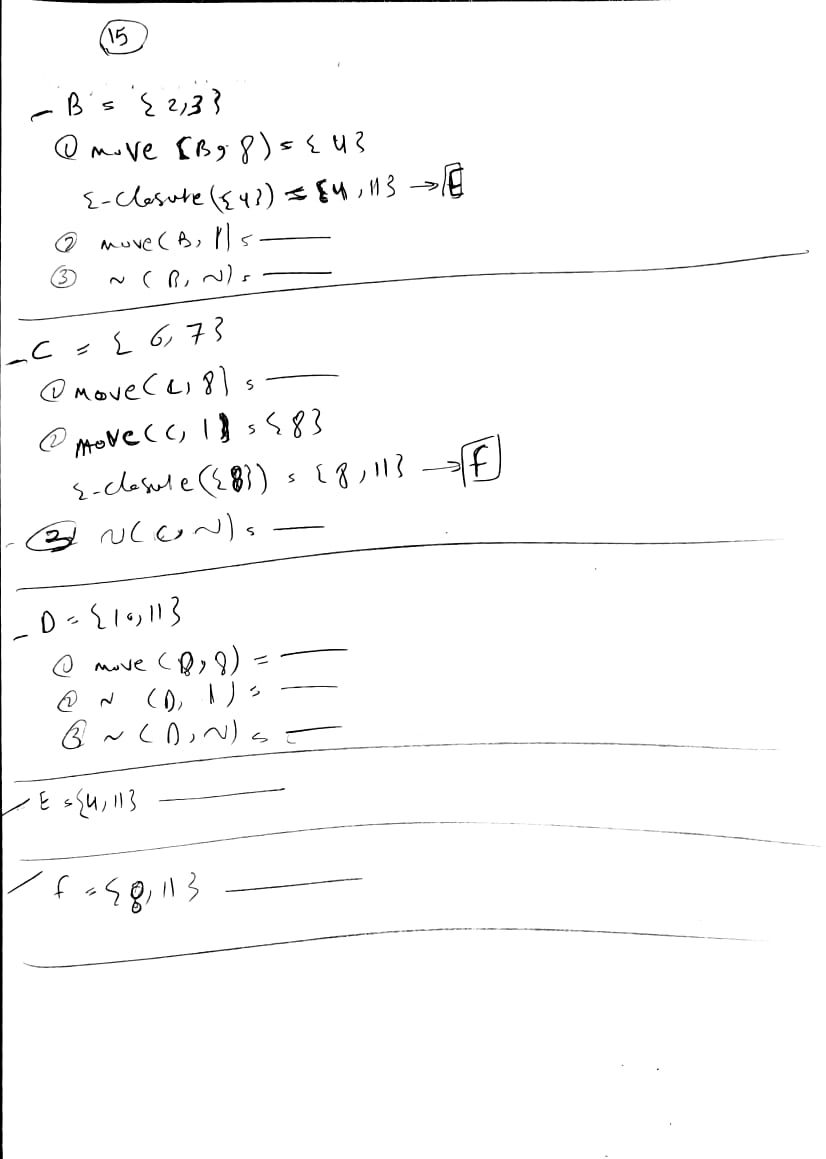 15
- B = { 2,3 }
① move {B, 8) = { 4 }
ε-closure({4}) = {4, 11} → E
② move(B, 1) = —
③ ~ (B, ~) = —
- C = { 6, 7 }
① move(C, 8) = —
② move(C, 1) = { 8 }
ε-closure({8}) = {8, 11} → F
③ ~(C, ~) = —
- D = {10, 11}
① move (D, 8) = —
② ~ (D, 1) = —
③ ~ (D, ~) = —
- E = {4, 11} —
- f = {8, 11} —